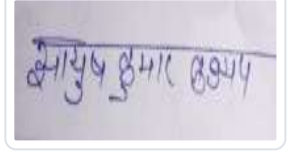 आयुष कुमार कश्यप